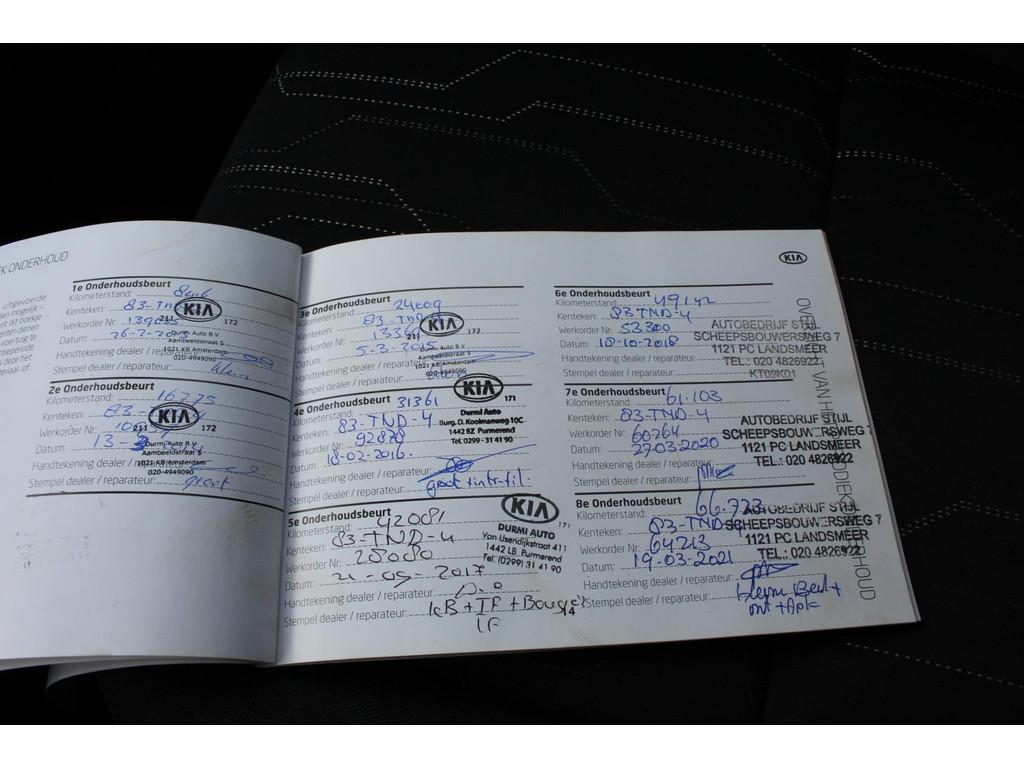 EK ONDERHOUD
uitgevoerde
1e Onderhoudsbeurt
Kilometerstand:
Kenteken: 83-TND
Werkorder Nr:
Datum:
Handtekening dealer /
Stempel dealer / reparateur:
KIA
211 172
Durmi Auto B.V
Aambeeldstraat 5
1021 KB Amsterdam
020-4949090
2e Onderhoudsbeurt
Kilometerstand: 16775
Kenteken: 83
Werkorder Nr:
Datum: 13-
Handtekening dealer /
Stempel dealer / reparateur: groot
KIA
211 172
Durmi Auto B.V
Aambeeldstraat 5
1021 KB Amsterdam
020-4949090
3e Onderhoudsbeurt
Kilometerstand: 24009
Kenteken: 83-TND
Werkorder Nr:
Datum: 5-3-2015
Handtekening dealer /
Stempel dealer / reparateur:
KIA
211 172
Durmi Auto B.V
Aambeeldstraat 5
1021 KB Amsterdam
020-4949090
4e Onderhoudsbeurt
Kilometerstand: 31361
Kenteken: 83-TND-4
Werkorder Nr: 92878
Datum: 18-02-2016.
Handtekening dealer / reparateur:
Stempel dealer / reparateur: groot+intr-fil.
KIA
171
Durmi Auto
Burg. D. Kooimanweg 10C
1442 BZ Purmerend
Tel. 0299 - 31 41 90
5e Onderhoudsbeurt
Kilometerstand: 42081
Kenteken: 83-TND-4
Werkorder Nr: 28080
Datum: 21-05-2017
Handtekening dealer / reparateur:
Stempel dealer / reparateur: KB+IF+Bougies
KIA
171
DURMI AUTO
Van IJsendijkstraat 411
1442 LB Purmerend
Tel. (0299) 31 41 90
14
KIA
6e Onderhoudsbeurt
Kilometerstand: 49142
Kenteken: 83TND-4
Werkorder Nr: 53300
Datum: 18-10-2018
Handtekening dealer / reparateur:
Stempel dealer / reparateur:
AUTOBEDRIJF STIJL
SCHEEPSBOUWERSWEG 7
1121 PC LANDSMEER
TEL.: 020 4826922
KT09K01
7e Onderhoudsbeurt
Kilometerstand: 61.103
Kenteken: 83-TND-4
Werkorder Nr: 60264
Datum: 27-03-2020
Handtekening dealer / reparateur:
Stempel dealer / reparateur:
AUTOBEDRIJF STIJL
SCHEEPSBOUWERSWEG 7
1121 PC LANDSMEER
TEL.: 020 4826922
8e Onderhoudsbeurt
Kilometerstand: 66.723
Kenteken: 83-TND-4
Werkorder Nr: 64213
Datum: 19-03-2021
Handtekening dealer / reparateur:
Stempel dealer / reparateur: Kleine Beurt +
AUTOBEDRIJF STIJL
SCHEEPSBOUWERSWEG 7
1121 PC LANDSMEER
TEL.: 020 4826922